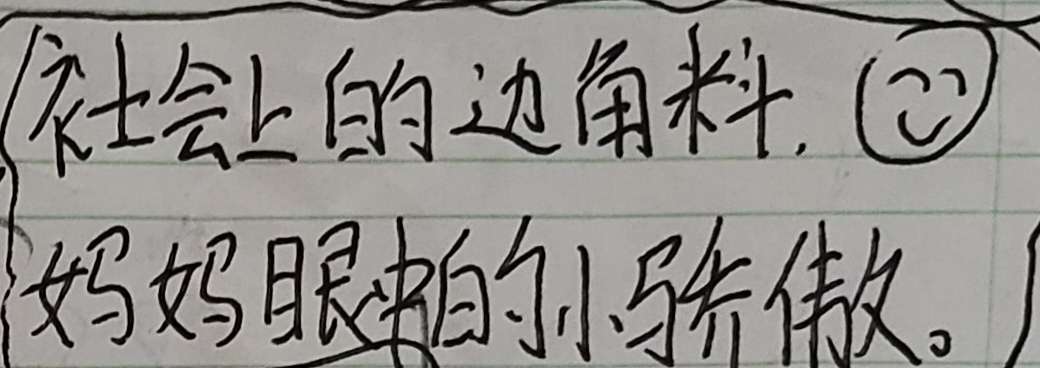 社会上的边角料.
妈妈眼中的小骄傲。